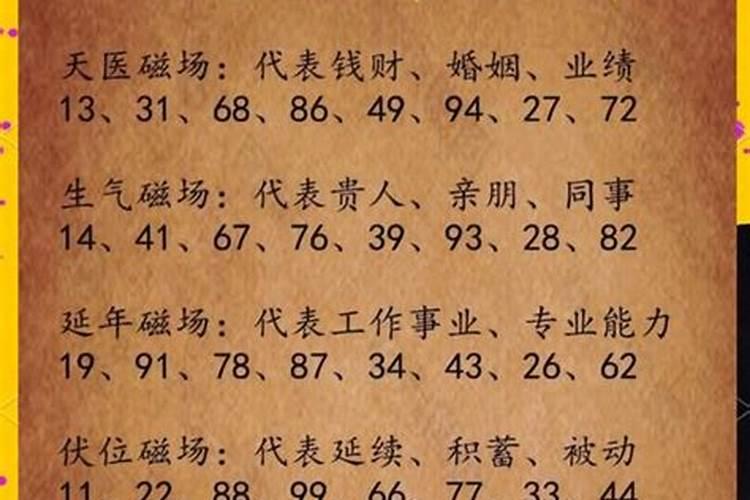 天医磁场：代表钱财、婚姻、业绩
13、31、68、86、49、94、27、72
生气磁场：代表贵人、亲朋、同事
14、41、67、76、39、93、28、82
延年磁场：代表工作事业、专业能力
19、91、78、87、34、43、26、62
伏位磁场：代表延续、积蓄、被动
11、22、88、99、66、77、33、44